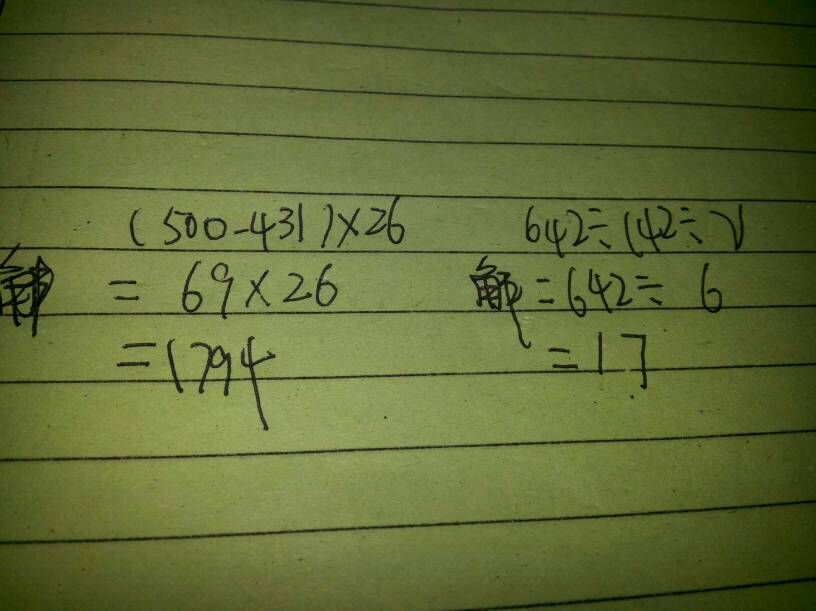 (500-431)×26
解 = 69×26
=1794
642÷(42÷7)
解=642÷6
=17